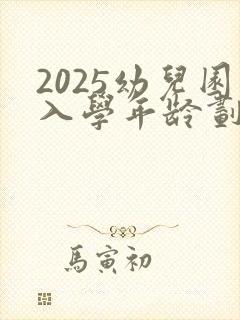 2025幼兒園
入學年齡劃
馬寅初